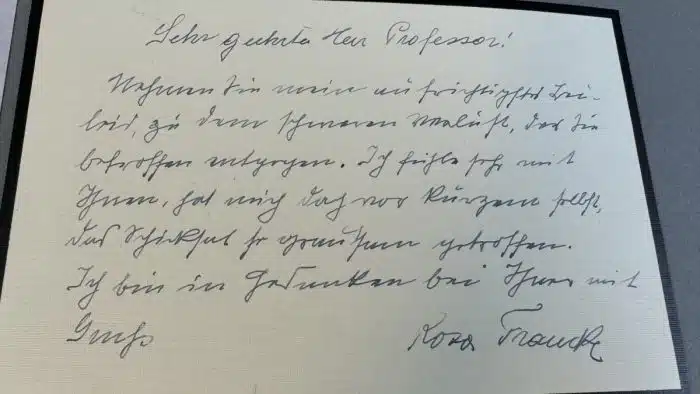 Sehr geehrter Herr Professor!
Nehmen Sie mein aufrichtigstes Bei-
leid, zu dem schweren Verlust, der Sie
betroffen entgegen. Ich fühle sehr mit
Ihnen, hat mich doch vor kurzem selbst,
das Schicksal so grausam getroffen.
Ich bin in Gedanken bei Ihnen mit
Gruß Rosa Francke